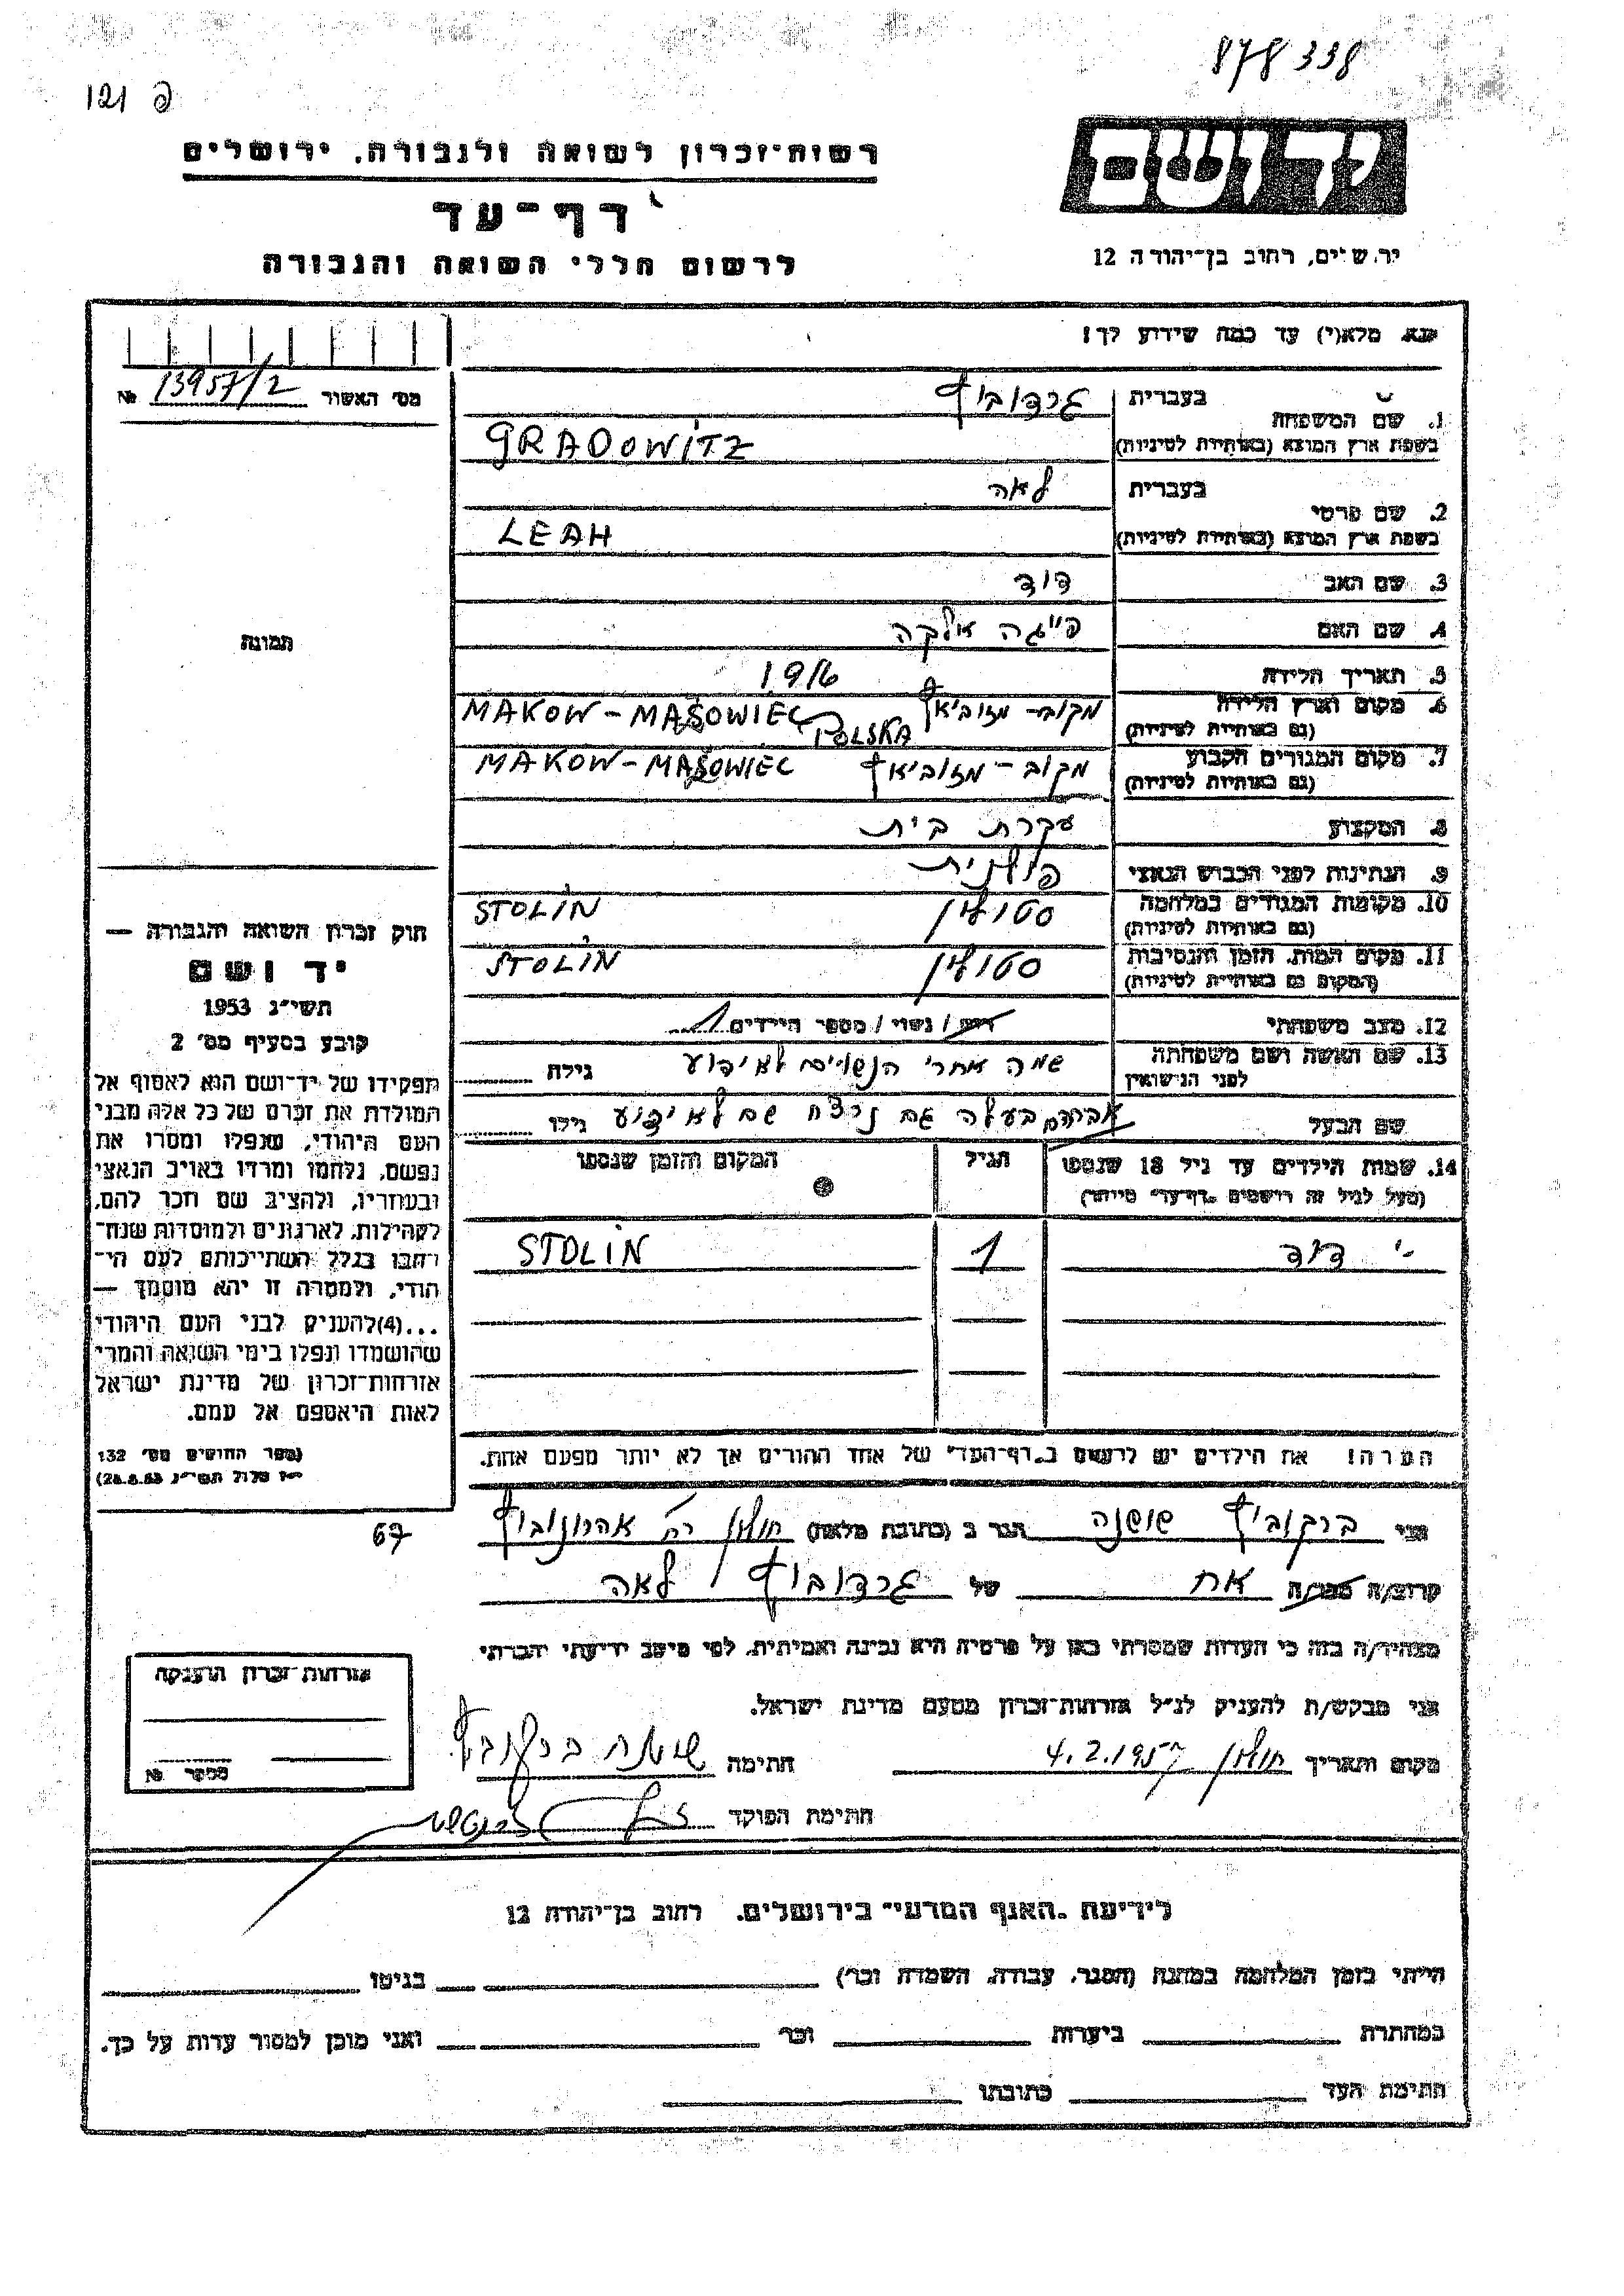 878338
פ 121
רשות־זכרון לשואה ולגבורה, ירושלים
דף־עד
לרשום חללי השואה והגבורה
ידושם
רחוב בן־יהודה 12
נא מלא(י) עד כמה שידוע לך!
מס' האשור № 13957/2
בעברית גרדוביץ
1. שם המשפחה
בשפת ארץ המוצא (באותיות לטיניות) GRADOWITZ
בעברית לאה
2. שם פרטי
בשפת ארץ המוצא (באותיות לטיניות) LEAH
3. שם האב דוד
4. שם האם פייגה אלקה
5. תאריך הלידה 1916
6. מקום וארץ הלידה מקוב - מזוביאצק MAKOW - MASOWIEC POLSKA
(גם באותיות לטיניות)
7. מקום המגורים הקבוע מקוב - מזוביאצק MAKOW - MASOWIEC
(גם באותיות לטיניות)
8. המקצוע עקרת בית
9. הנתינות לפני הכבוש הנאצי פולנית
10. מקומות המגורים במלחמה סטולין STOLIN
(גם באותיות לטיניות)
11. מקום המות, הזמן והנסיבות סטולין STOLIN
(המקום גם באותיות לטיניות)
12. מצב משפחתי רווק / נשוי / מספר הילדים 1
13. שם האשה ושם משפחתה שמה אחרי הנשואים לא ידוע גילה
לפני הנישואין
שם הבעל אברהם בעלה גם נרצח שם לא ידוע גילו
14. שמות הילדים עד גיל 18 שנספו הגיל המקום והזמן שנספו
(מעל לגיל זה רושמים "דף־עד" מיוחד)
דוד 1 STOLIN
הערה! את הילדים יש לרשום ב"דף־העד" של אחד ההורים אך לא יותר מפעם אחת.
תמונה
חוק זכרון השואה והגבורה —
יד ושם
תשי"ג 1953
קובע בסעיף מס' 2
תפקידו של יד־ושם הוא לאסוף אל
המולדת את זכרם של כל אלה מבני
העם היהודי, שנפלו ומסרו את
נפשם, נלחמו ומרדו באויב הנאצי
ובעוזריו, ולהציב שם וזכר להם,
לקהילות, לארגונים ולמוסדות שנח־
רבו בגלל השתייכותם לעם הי־
הודי, ולמטרה זו יהא מוסמך —
...(4)להעניק לבני העם היהודי
שהושמדו ונפלו בימי השואה והמרי
אזרחות־זכרון של מדינת ישראל
לאות היאספם אל עמם.
(ספר החוקים מס' 132
י"ז אלול תשי"ג 28.8.53)
67
אני ברקוביץ שושנה הגר ב (כתובת מלאה) חולון רח' אהרונוביץ
קרוב/ה מכר/ה אח של גרדוביץ לאה
מצהיר/ה בזה כי העדות שמסרתי כאן על פרטיה היא נכונה ואמיתית, לפי מיטב ידיעתי והכרתי
אני מבקש/ת להעניק לנ"ל אזרחות־זכרון מטעם מדינת ישראל.
מקום ותאריך חולון 4.2.1957 חתימה שושנה ברקוביץ
חתימת הפוקד
אזרחות־זכרון הוענקה
מספר №
לידיעת "האגף המדעי" בירושלים, רחוב בן־יהודה 12
הייתי בזמן המלחמה במחנה (הסגר, עבודה, השמדה וכו') בגיטו
במחתרת ביערות וכו' ואני מוכן למסור עדות על כך.
חתימת העד כתובתו